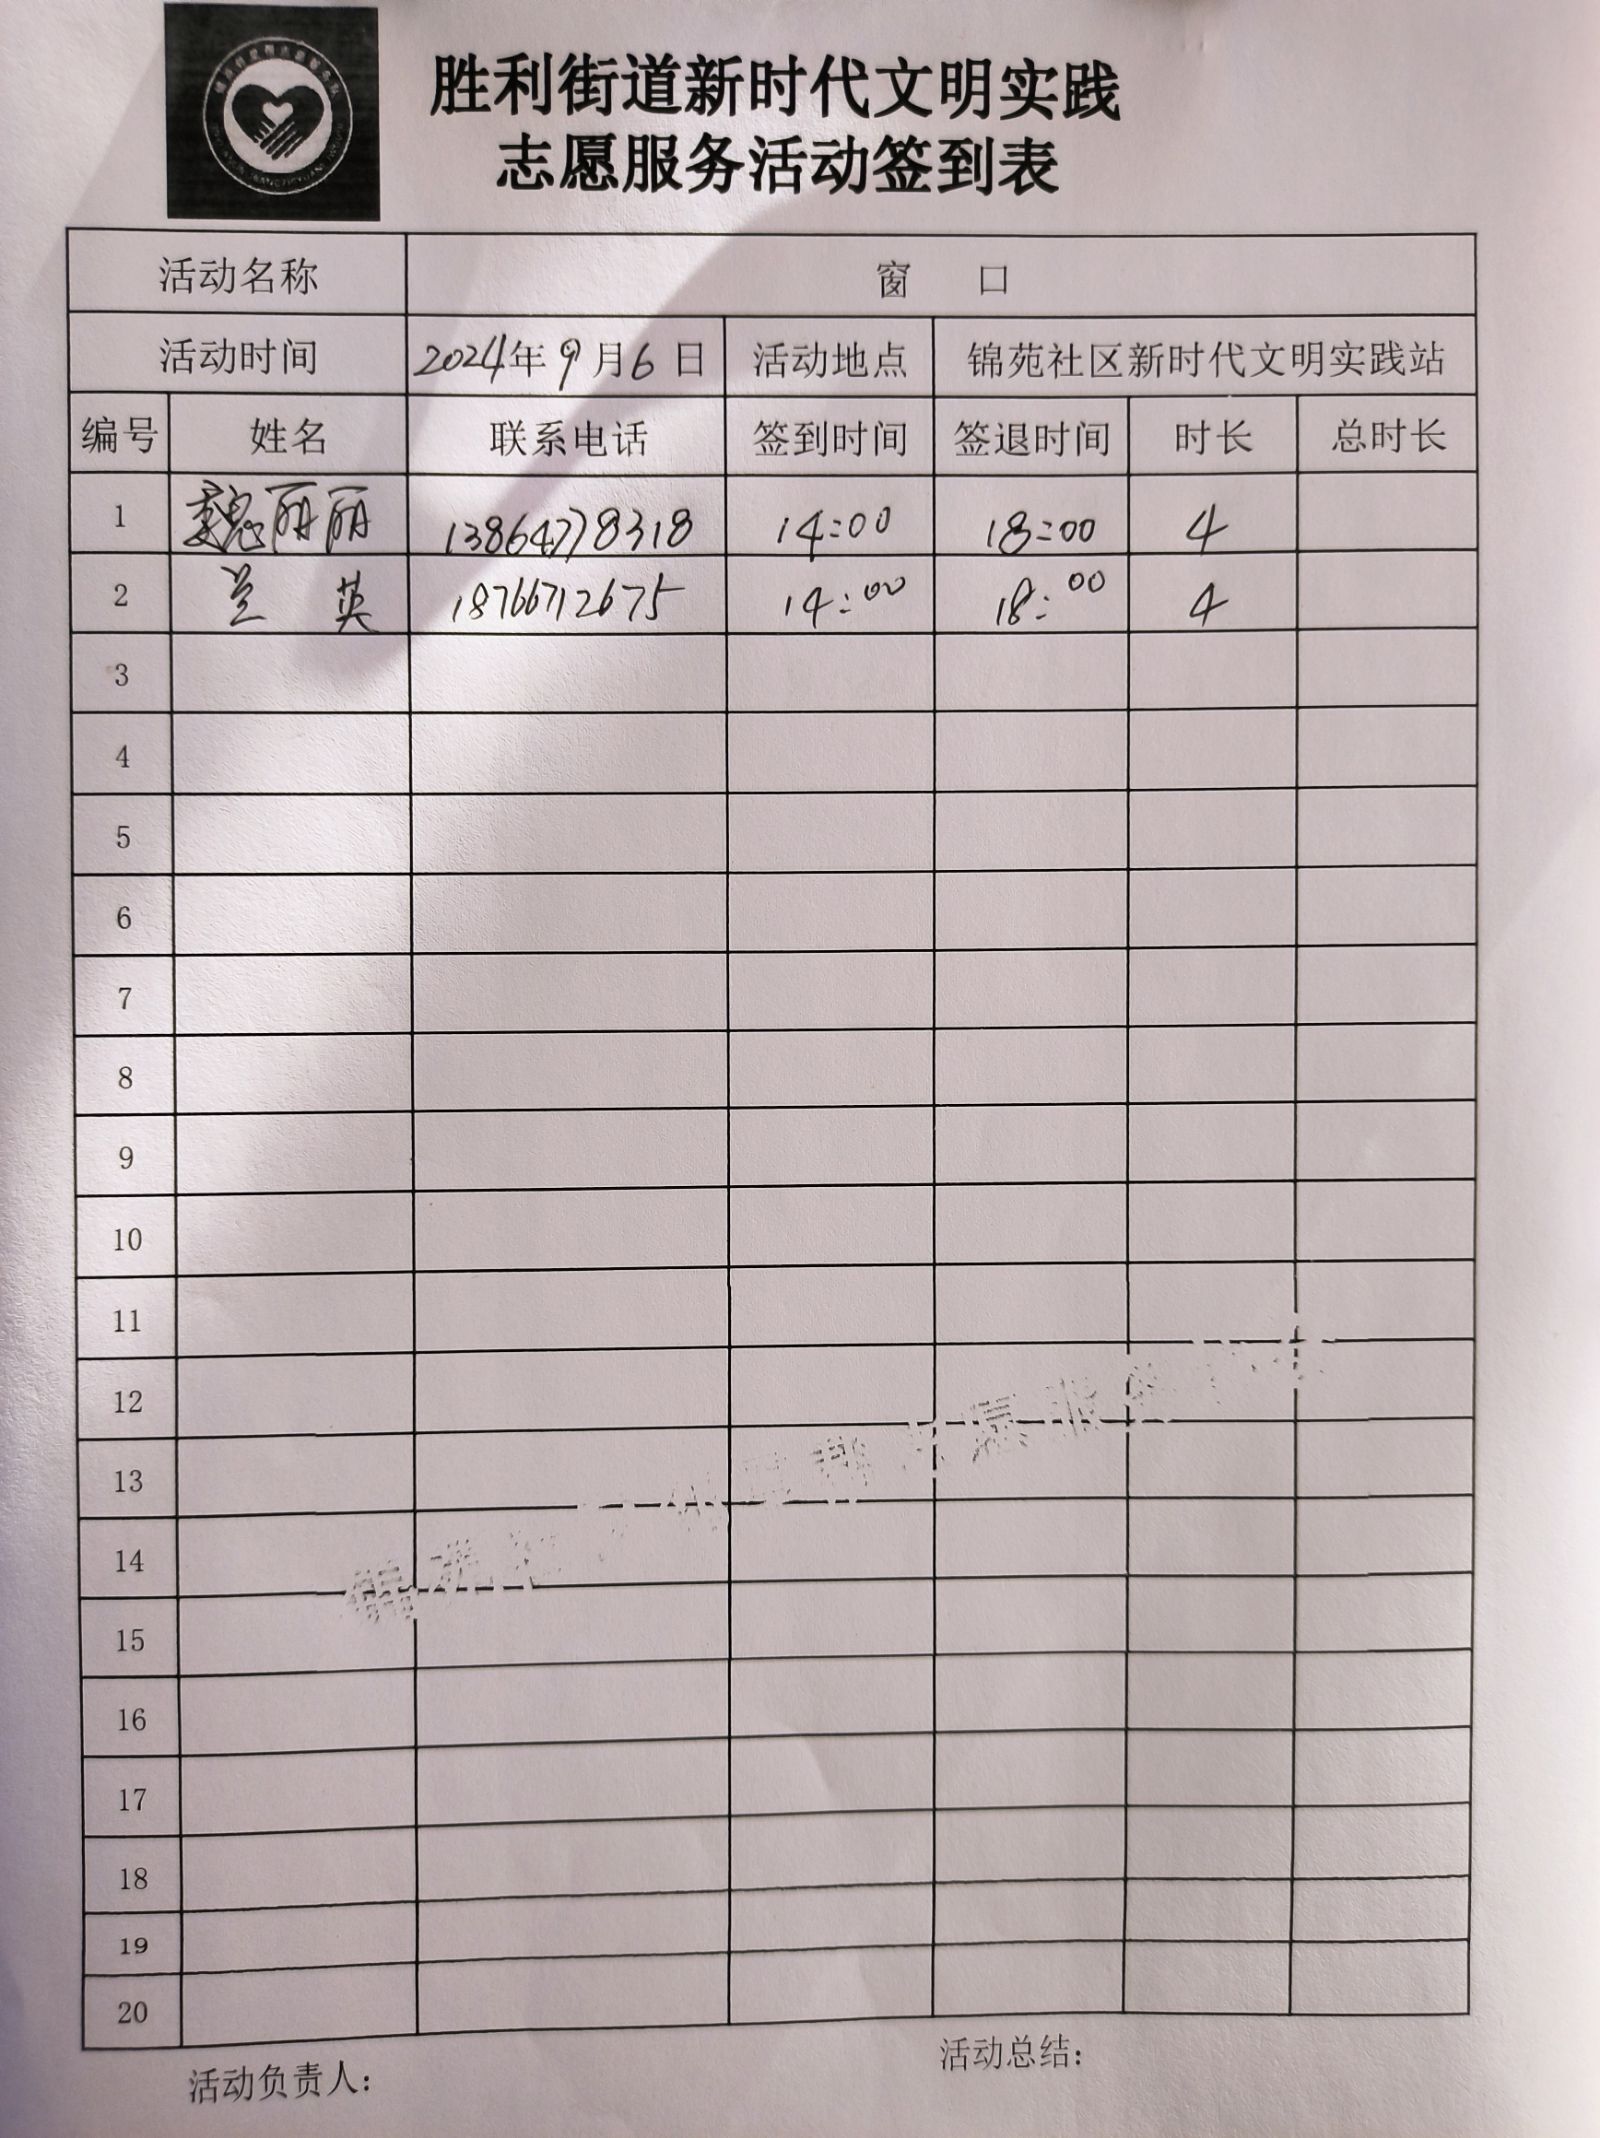 胜利街道新时代文明实践
志愿服务活动签到表
活动名称 窗 口
活动时间 2024年9月6日 活动地点 锦苑社区新时代文明实践站
编号 姓名 联系电话 签到时间 签退时间 时长 总时长
1 魏丽丽 13864778318 14:00 18:00 4
2 兰 英 18766712675 14:00 18:00 4
3
4
5
6
7
8
9
10
11
12
13
14
15
16
17
18
19
20
活动负责人: 活动总结: